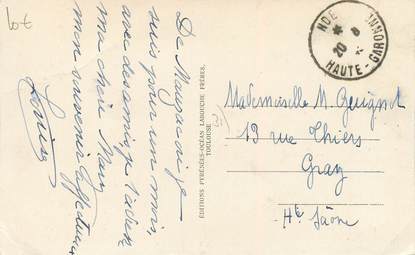 10€
De Mauzac où je
suis pour un mois,
avec des amis, je t'adresse
ma chère Mary
mon souvenir affectueux
Louise
ÉDITIONS PYRÉNÉES-OCÉAN LABOUCHE FRÈRES,
TOULOUSE
NOE
20 8
HAUTE-GARONNE
Mademoiselle M.
13 rue Thiers
Gray
Hte Saône